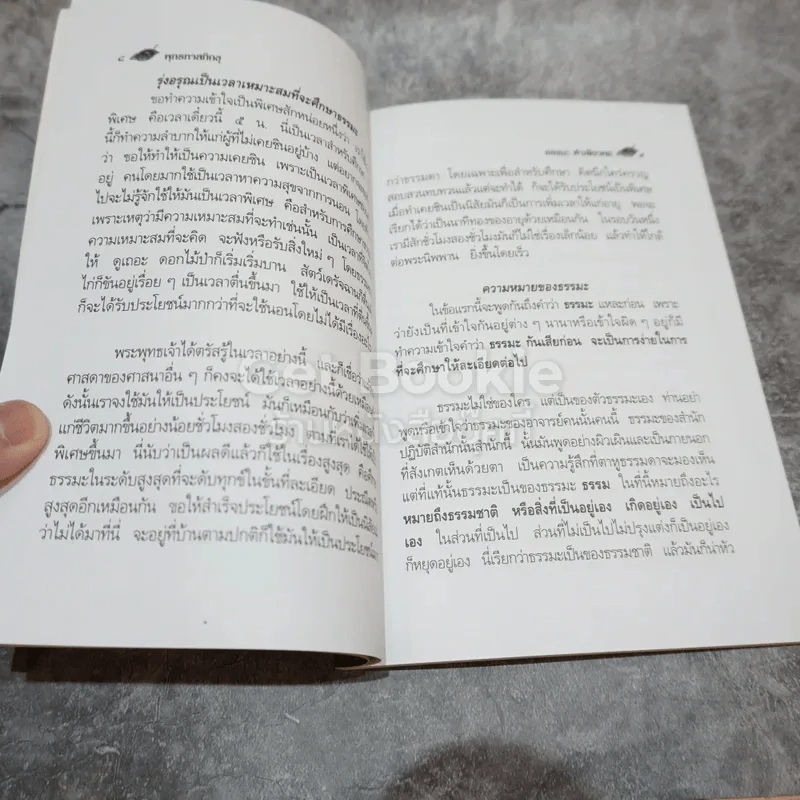 ๘ พุทธทาสภิกขุ
รุ่งอรุณเป็นเวลาเหมาะสมที่จะศึกษาธรรมะ
ขอทำความเข้าใจเป็นพิเศษสักหน่อยหนึ่งว่า
พิเศษ คือเวลาเดี๋ยวนี้ ๕ น. นี่เป็นเวลาสำหรับศึกษา
นี้ก็ทำความลำบากให้แก่ผู้ที่ไม่เคยชินอยู่บ้าง แต่อยาก
ว่า ขอให้ทำให้เป็นความเคยชิน เพราะเป็นเวลาพิเศษ
อยู่ คนโดยมากใช้เป็นเวลาหาความสุขจากการนอน
ไปจะไม่รู้จักใช้ให้มันเป็นเวลาพิเศษ คือสำหรับการศึกษา
เพราะเหตุว่ามีความเหมาะสมที่จะทำเช่นนั้น เป็นเวลาที่
ความเหมาะสมที่จะคิด จะฟังหรือรับสิ่งใหม่ ๆ โดย
ให้ ดูเถอะ ดอกไม้ป่าก็เริ่มเริ่มบาน สัตว์เดรัจฉาน
ไก่ก็ขันอยู่เรื่อย ๆ เป็นเวลาตื่นขึ้นมา ใช้ให้เป็นเวลา
ก็จะได้รับประโยชน์มากกว่าที่จะใช้นอนโดยไม่ได้มีเรื่อง
พระพุทธเจ้าได้ตรัสรู้ในเวลาอย่างนี้ และก็เชื่อว่า
ศาสดาของศาสนาอื่น ๆ ก็คงจะได้ใช้เวลาอย่างนี้ด้วยเหมือน
ดังนั้นเราจงใช้มันให้เป็นประโยชน์ มันก็เหมือนกับว่าเพิ่ม
แก่ชีวิตมากขึ้นอย่างน้อยชั่วโมงสองชั่วโมง ตามที่เราได้ใช้
พิเศษขึ้นมา นี่นับว่าเป็นผลดีแล้วก็ใช้ในเรื่องสูงสุด คือศึกษา
ธรรมะในระดับสูงสุดที่จะดับทุกข์ในขั้นที่ละเอียด ประณีต
สูงสุดอีกเหมือนกัน ขอให้สำเร็จประโยชน์โดยฝึกให้เป็นนิสัย
ว่าไม่ได้มาที่นี่ จะอยู่ที่บ้านตามปกติก็ใช้มันให้เป็นประโยชน์
กว่าธรรมดา โดยเฉพาะเพื่อสำหรับศึกษา คิดนึกใคร่ครวญ
สอบสวนทบทวนแล้วแต่จะทำได้ ก็จะได้รับประโยชน์เป็นพิเศษ
เมื่อทำเคยชินเป็นนิสัยมันก็เป็นการเพิ่มเวลาให้แก่อายุ พอจะ
เรียกได้ว่าเป็นนาทีทองของอายุด้วยเหมือนกัน ในรอบวันหนึ่ง
เรามีสักชั่วโมงสองชั่วโมงมันก็ไม่ใช่เรื่องเล็กน้อย แล้วทำให้ใกล้
ต่อพระนิพพาน ยิ่งขึ้นโดยเร็ว
ความหมายของธรรมะ
ในข้อแรกนี้จะพูดกันถึงคำว่า ธรรมะ แหละก่อน เพราะ
ว่ายังเป็นที่เข้าใจกันอยู่ต่าง ๆ นานาหรือเข้าใจผิด ๆ อยู่ก็มี
ทำความเข้าใจคำว่า ธรรมะ กันเสียก่อน จะเป็นการง่ายในการ
ที่จะศึกษาให้ละเอียดต่อไป
ธรรมะไม่ใช่ของใคร แต่เป็นของตัวธรรมะเอง ท่านอย่า
พูดหรือเข้าใจว่าธรรมะของอาจารย์คนนั้นคนนี้ ธรรมะของสำนัก
ปฏิบัติสำนักนั้นสำนักนี้ นั้นมันพูดอย่างผิวเผินและเป็นภายนอก
ที่สังเกตเห็นด้วยตา เป็นความรู้สึกที่ตาหูธรรมดาจะมองเห็น
แต่ที่แท้นั้นธรรมะเป็นของธรรมะ ธรรม ในที่นี้หมายถึงอะไร
หมายถึงธรรมชาติ หรือสิ่งที่เป็นอยู่เอง เกิดอยู่เอง เป็นไป
เอง ในส่วนที่เป็นไป ส่วนที่ไม่เป็นไปไม่ปรุงแต่งก็เป็นอยู่เอง
ก็หยุดอยู่เอง นี่เรียกว่าธรรมะเป็นของธรรมชาติ แล้วมันก็น่าหัว
Get Bookie
ร้านหนังสือมือสอง